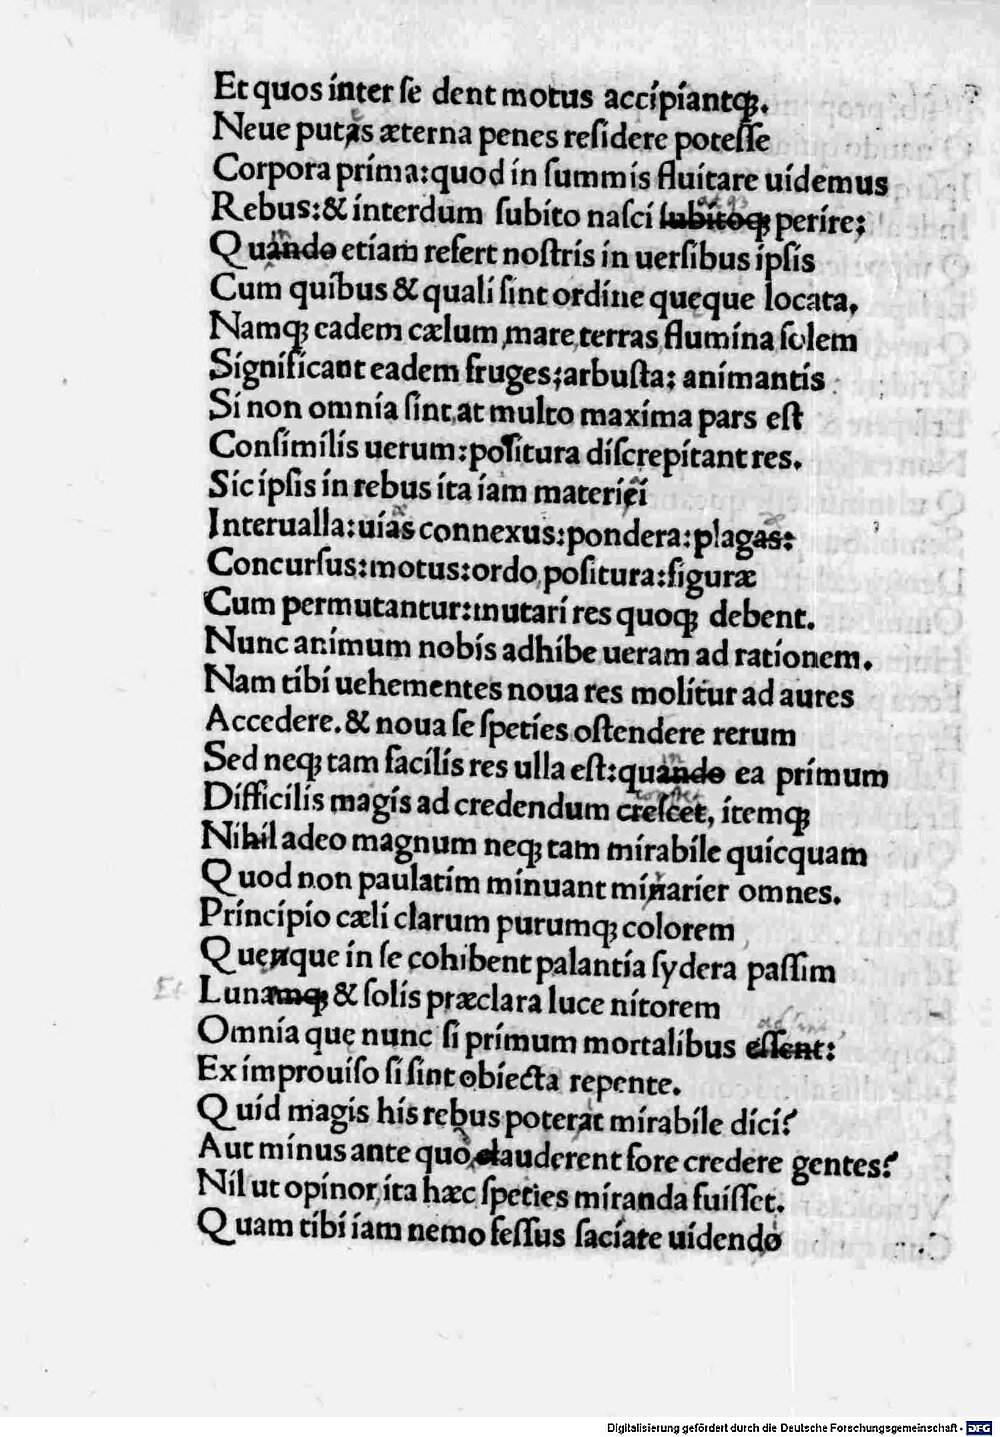 Et quos inter se dent motus accipiantqꝫ.
Neue putas æterna penes residere potesse
Corpora prima:quod in summis fluitare uidemus
Rebus:& interdum subito nasci subitoqꝫ perire;
Quando etiam refert nostris in uersibus ipsis
Cum quibus & quali sint ordine queque locata,
Namqꝫ eadem cælum,mare,terras,flumina solem
Significant eadem fruges;arbusta; animantis
Si non omnia sint,at multo maxima pars est
Consimilis uerum:positura discrepitant res.
Sic ipsis in rebus ita iam materiei
Interualla:uias connexus:pondera:plagas:
Concursus:motus:ordo,positura:figuræ
Cum permutantur:mutari res quoqꝫ debent.
Nunc animum nobis adhibe ueram ad rationem.
Nam tibi uehementes noua res molitur ad aures
Accedere.& noua se speties ostendere rerum
Sed neqꝫ tam facilis res ulla est:quando ea primum
Difficilis magis ad credendum crescet, itemqꝫ
Nihil adeo magnum neqꝫ tam mirabile quicquam
Quod non paulatim minuant mirarier omnes.
Principio cæli clarum purumqꝫ colorem
Quenque in se cohibent palantia sydera passim
Et Lunamqꝫ & solis præclara luce nitorem
Omnia quę nunc si primum mortalibus essent:
Ex improuiso si sint obiecta repente.
Quid magis his rebus poterat mirabile dici?
Aut minus ante quo clauderent fore credere gentes?
Nil ut opinor,ita hæc speties miranda fuisset.
Quam tibi iam nemo fessus saciate uidendo
Digitalisierung gefördert durch die Deutsche Forschungsgemeinschaft - DFG